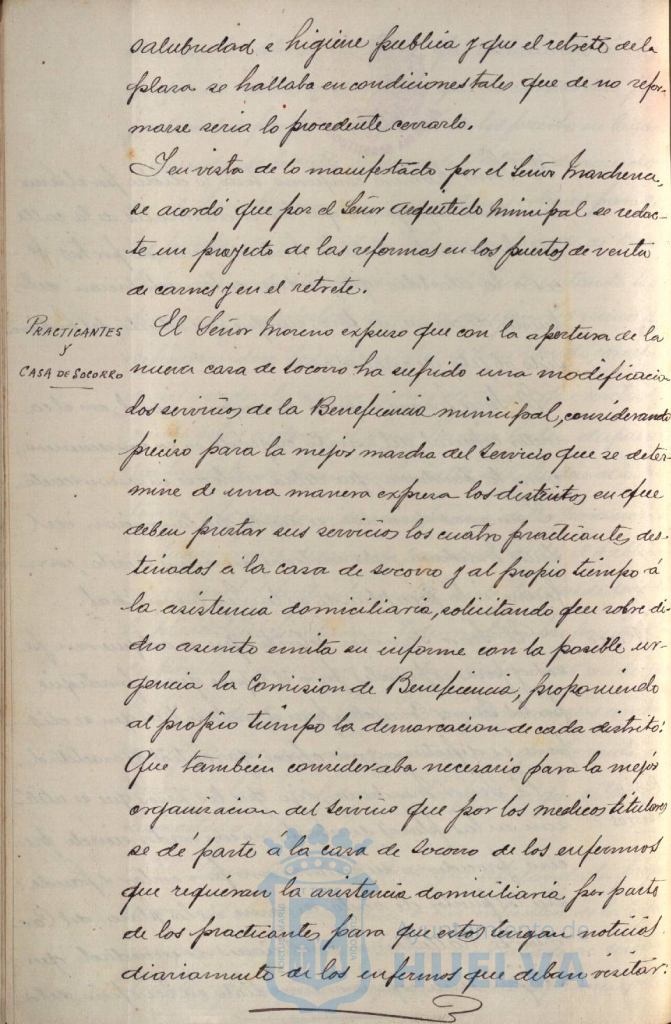 salubridad e higiene publica y que el retrete de la
plaza se hallaba en condiciones tales que de no refor-
marse seria lo procedente cerrarlo.
Y en vista de lo manifestado por el Señor Marchena,
se acordó que por el Señor Arquitecto Municipal se redac-
te un proyecto de las reformas en los puestos de venta
de carnes y en el retrete.
PRACTICANTES
Y
CASA DE SOCORRO
El Señor Moreno expuso que con la apertura de la
nueva casa de Socorro ha sufrido una modificacion
los servicios de la Beneficencia municipal, considerando
preciso para la mejor marcha del Servicio que se deter-
mine de una manera expresa los distritos en que
deben prestar sus servicios los cuatro practicantes des-
tinados á la casa de Socorro y al propio tiempo á
la asistencia domiciliaria, solicitando que sobre di-
cho asunto emita su informe con la posible ur-
gencia la Comision de Beneficencia, proponiendo
al propio tiempo la demarcacion de cada distrito:
Que tambien consideraba necesario para la mejor
organizacion del Servicio que por los medicos titulares
se dé parte á la casa de Socorro de los enfermos
que requieran la asistencia domiciliaria por parte
de los practicantes para que estos tengan noticias
diariamente de los enfermos que deban visitar.
Ayuntamiento de
HUELVA